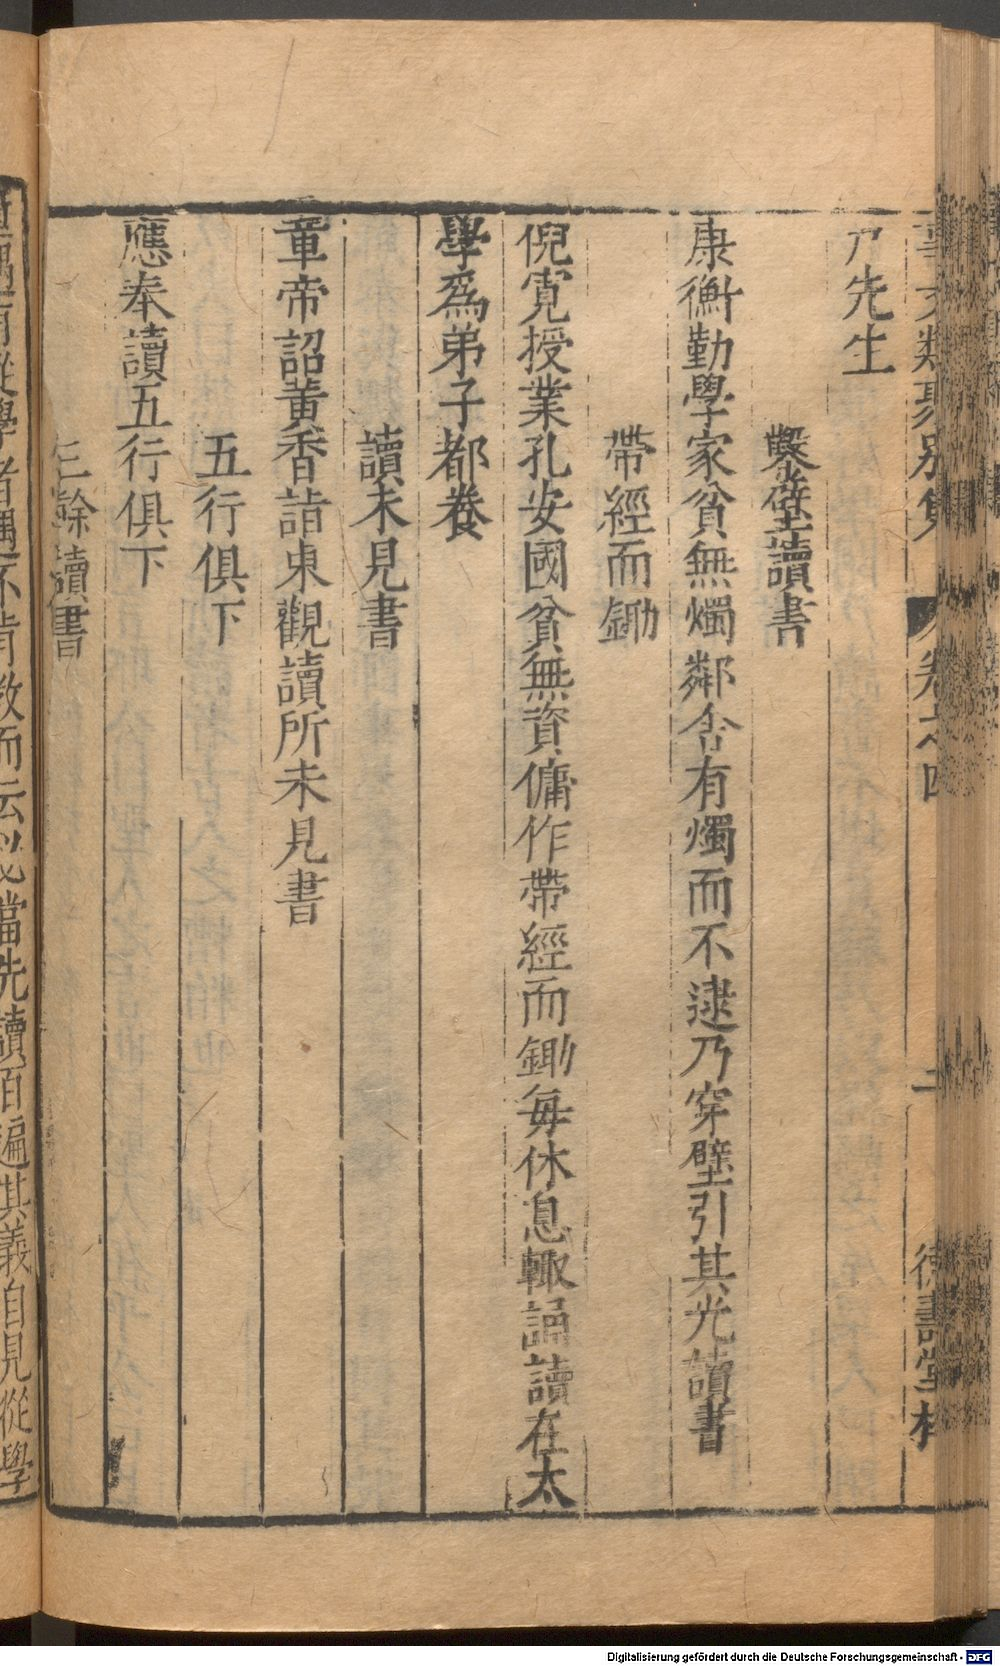 尸先生
鑿壁讀書
康衡勤學家貧無燭鄰舍有燭而不逮乃穿壁引其光讀書
帶經而鋤
倪寬授業孔安國貧無資傭作帶經而鋤每休息輙誦讀在太
學爲弟子都養
讀未見書
章帝詔黃香詣東觀讀所未見書
五行俱下
應奉讀五行俱下
三餘讀書
遇有從學者遇不肯教而云必當先讀百遍其義自見從學
Digitalisierung gefördert durch die Deutsche Forschungsgemeinschaft - DFG